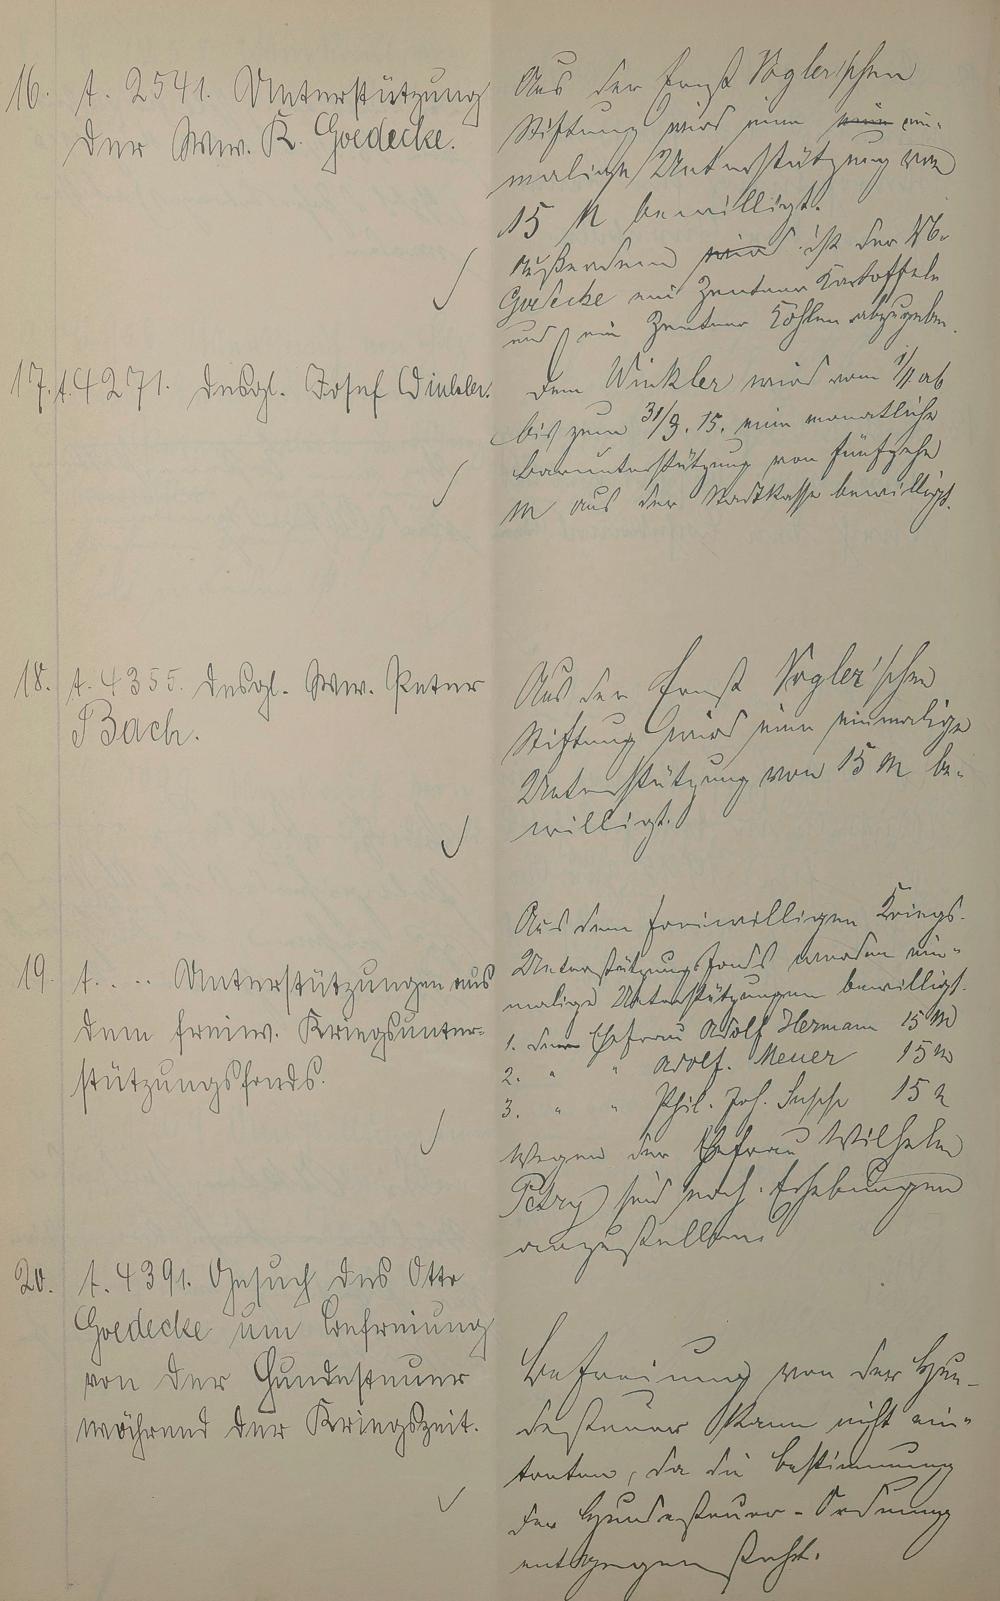 16. A. 2541. Unterstützung
der Ww. K. Goedecke.
Aus der Ernst Vogler'schen
Stiftung wird eine ein-
malige Unterstützung von
15 M bewilligt.
Außerdem wird ist der Wb.
Goedecke ein Zentner Kartoffeln
und ein Zentner Kohlen abzugeben.
17. A. 4271. desgl. Josef Winkler.
Dem Winkler wird vom 1/11 ab
bis zum 31/3. 15. eine monatliche
Barunterstützung von fünfzehn
M aus der Stadtkasse bewilligt.
18. A. 4355. desgl. Ww. Peter
Bach.
Aus der Ernst Vogler'schen
Stiftung wird eine einmalige
Unterstützung von 15 M be-
willigt.
19. A. .. .. Unterstützungen aus
dem freiw. Kriegsunter-
stützungsfonds.
Aus dem freiwilligen Kriegs-
Unterstützungsfonds werden ein-
malige Unterstützungen bewilligt.
1. der Ehefrau Adolf Hermann 15 M
2. " " Adolf Meuer 15 M
3. " " Phil. Joh. 15 M
Wegen der Ehefrau Wilhelm
Petry sind noch Erhebungen
anzustellen.
20. A. 4391. Gesuch des Otto
Goedecke um Befreiung
von der Hundesteuer
während der Kriegszeit.
Befreiung von der Hun-
desteuer kann nicht ein-
treten, da die Bestimmung
der Hundesteuer-Ordnung
entgegen steht.